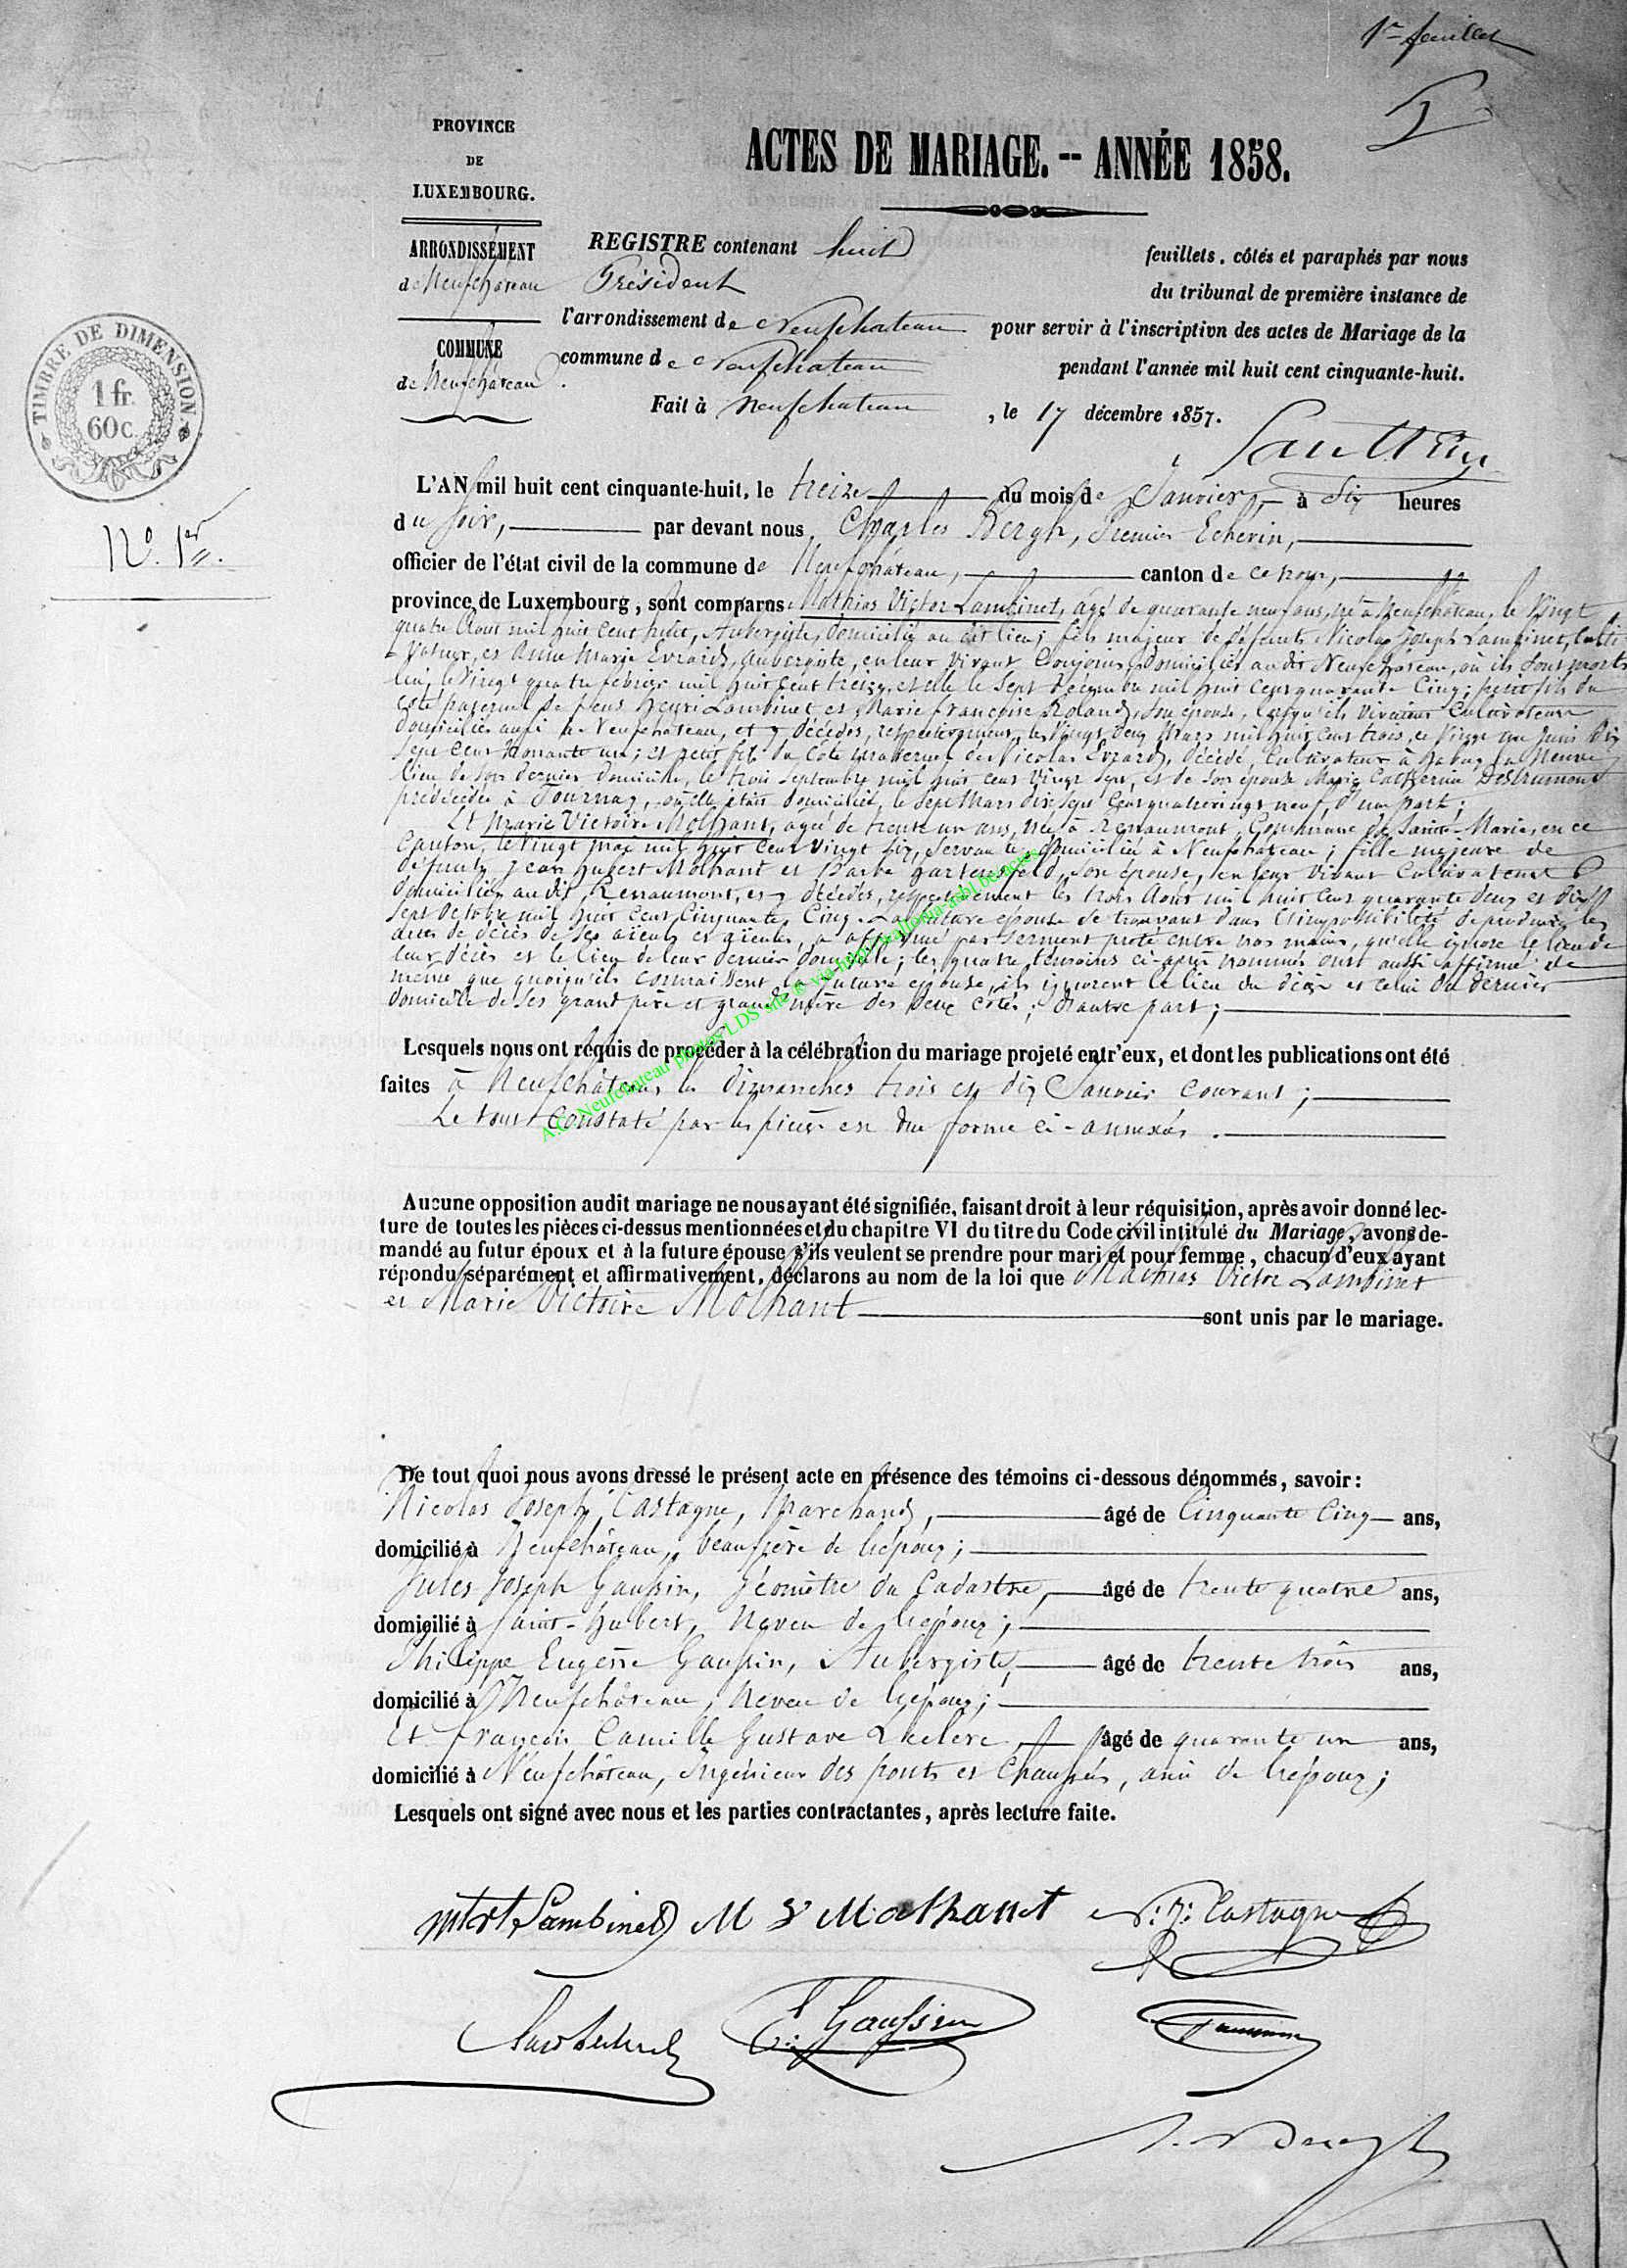 1er feuillet
1
PROVINCE
DE
LUXEMBOURG.
ACTES DE MARIAGE. -- ANNÉE 1858.
ARRONDISSEMENT
de Neufchâteau
COMMUNE
de Neufchâteau.
REGISTRE contenant huit feuillets, côtés et paraphés par nous
Président du tribunal de première instance de
l'arrondissement de Neufchateau pour servir à l'inscription des actes de Mariage de la
commune de Neufchateau pendant l'année mil huit cent cinquante-huit.
Fait à Neufchateau, le 17 décembre 1857.
TIMBRE DE DIMENSION
1 fr.
60 c.
No. 1er.
L'AN mil huit cent cinquante-huit, le treize du mois de Janvier, à six heures
du soir, par devant nous, Charles Bergh, Premier Echevin,
officier de l'état civil de la commune de Neufchâteau, canton de ce nom,
province de Luxembourg, sont comparus Mathias Victor Lambinet, âgé de quarante neuf ans, né à Neufchâteau, le vingt
quatre Aout mil huit cent huit, Aubergiste, domicilié au dit lieu; fils majeur de défunts Nicolas Joseph Lambinet, culti-
-vateur, et Anne Marie Evrard, aubergiste, en leur vivant conjoints domiciliés au dit Neufchâteau, où ils sont morts
lui, le vingt quatre février mil huit cent treize, et elle le sept décembre mil huit cent quarante cinq; petit fils du
côté paternel de feus Henri Lambinet et Marie Françoise Roland, son épouse, lorsqu'ils vivaient cultivateurs
domiciliés aussi à Neufchâteau, et y décédés, respectivement les vingt deux Mars mil huit cent trois, et vingt un Juin dix
sept cent nonante un; et petit fils du côté maternel de Nicolas Evrard, décédé, cultivateur à
lieu de son dernier domicile, le trois Septembre mil huit cent vingt sept, et de son épouse Marie Catherine Destrumont
prédécédée à Tournay, où elle était domiciliée, le sept Mars dix sept cent quatrevingt neuf, d'une part;
Et Marie Victoire Molhant, agée de trente un ans, née à Renaumont, Commune de Sainte-Marie, en ce
Canton, le vingt mai mil huit cent vingt six, servante, domiciliée à Neufchateau; fille majeure de
défunts Jean Hubert Molhant et Barbe Gartengeld, son épouse, en leur vivant Cultivateurs
domiciliés au dit Renaumont, et y décédés, respectivement les trois Août mil huit cent quarante deux et dix
sept Octobre mil huit cent cinquante cinq. La future épouse se trouvant dans l'impossibilité de produire les
actes de décès de ses aïeuls et aïeules, a affirmé par serment prêté entre nos mains, qu'elle ignore le lieu de
leur décès et le lieu de leur dernier domicile; les quatre témoins ci-après nommés ont aussi affirmé de
même que quoiqu'ils connaissent la future épouse, ils ignorent le lieu du décès et celui du dernier
domicile de ses grand père et grand'mère des deux côtés; d'autre part;
A.C. Neufchateau photos LDS
Lesquels nous ont requis de procéder à la célébration du mariage projeté entr'eux, et dont les publications ont été
faites à Neufchâteau, les Dimanches trois et dix Janvier courant;
Le tout constaté par les pièces en due forme ci-annexées.
Aucune opposition audit mariage ne nous ayant été signifiée, faisant droit à leur réquisition, après avoir donné lec-
ture de toutes les pièces ci-dessus mentionnées et du chapitre VI du titre du Code civil intitulé du Mariage, avons de-
mandé au futur époux et à la future épouse s'ils veulent se prendre pour mari et pour femme, chacun d'eux ayant
répondu séparément et affirmativement, déclarons au nom de la loi que Mathias Victor Lambinet
et Marie Victoire Molhant sont unis par le mariage.
De tout quoi nous avons dressé le présent acte en présence des témoins ci-dessous dénommés, savoir:
Nicolas Joseph Castagne, Marchand, âgé de Cinquante Cinq ans,
domicilié à Neufchâteau, beaufrère de l'époux;
Jules Joseph Gaussin, Géomètre du Cadastre, âgé de trente quatre ans,
domicilié à Saint-Hubert, Neveu de l'époux;
Philippe Eugène Gaussin, Aubergiste, âgé de trente trois ans,
domicilié à Neufchâteau, Neveu de l'époux;
Et François Camille Gustave Leclerc, âgé de quarante un ans,
domicilié à Neufchâteau, Ingénieur des ponts et Chaussées, ami de l'époux;
Lesquels ont signé avec nous et les parties contractantes, après lecture faite.
Lambinet M V Molhant N: J: Castagne
E: Gaussin
Bergh